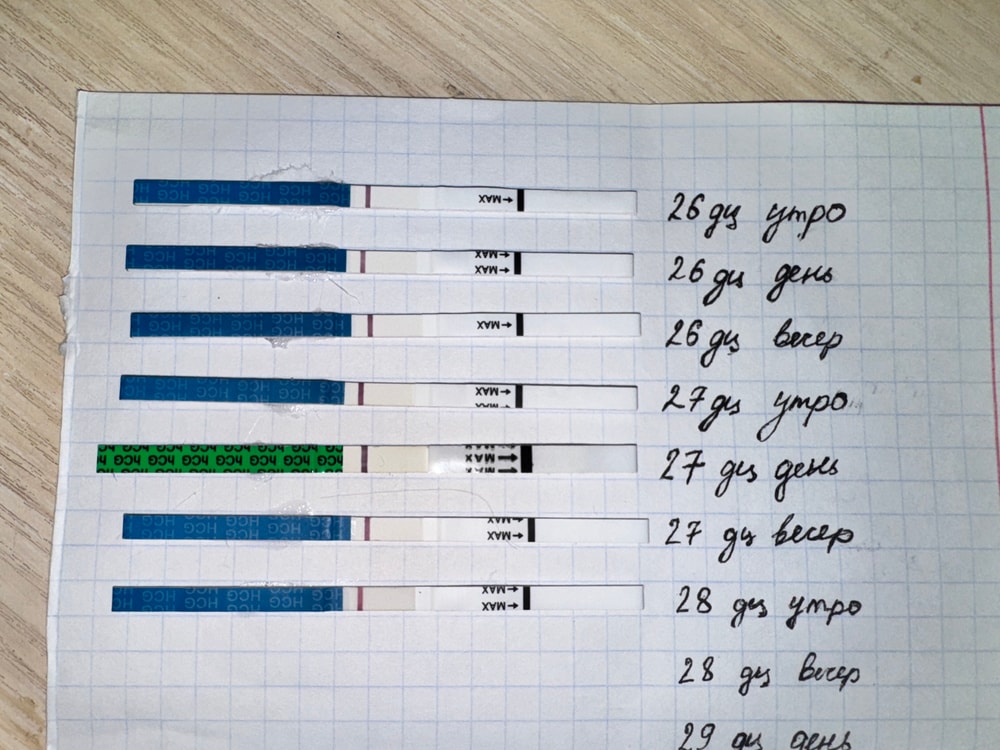 HCG HCG HCG HCG HCG MAX 26 дц утро
HCG HCG HCG HCG HCG MAX MAX 26 дц день
HCG HCG HCG HCG HCG MAX 26 дц вечер
HCG HCG HCG HCG HCG MAX MAX 27 дц утро
HCG HCG HCG HCG HCG MAX MAX MAX 27 дц день
HCG HCG HCG HCG HCG MAX MAX 27 дц вечер
HCG HCG HCG HCG HCG MAX MAX 28 дц утро
28 дц вечер
29 дц день